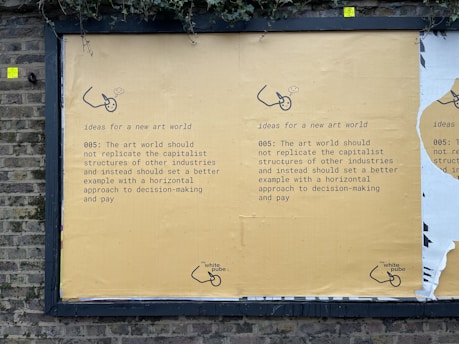 ideas for a new art world
005: The art world should
not replicate the capitalist
structures of other industries
and instead should set a better
example with a horizontal
approach to decision-making
and pay
the white
pube
ideas for a new art world
005: The art world should
not replicate the capitalist
structures of other industries
and instead should set a better
example with a horizontal
approach to decision-making
and pay
the white
pube
ideas
005: T
not re
struc
and in